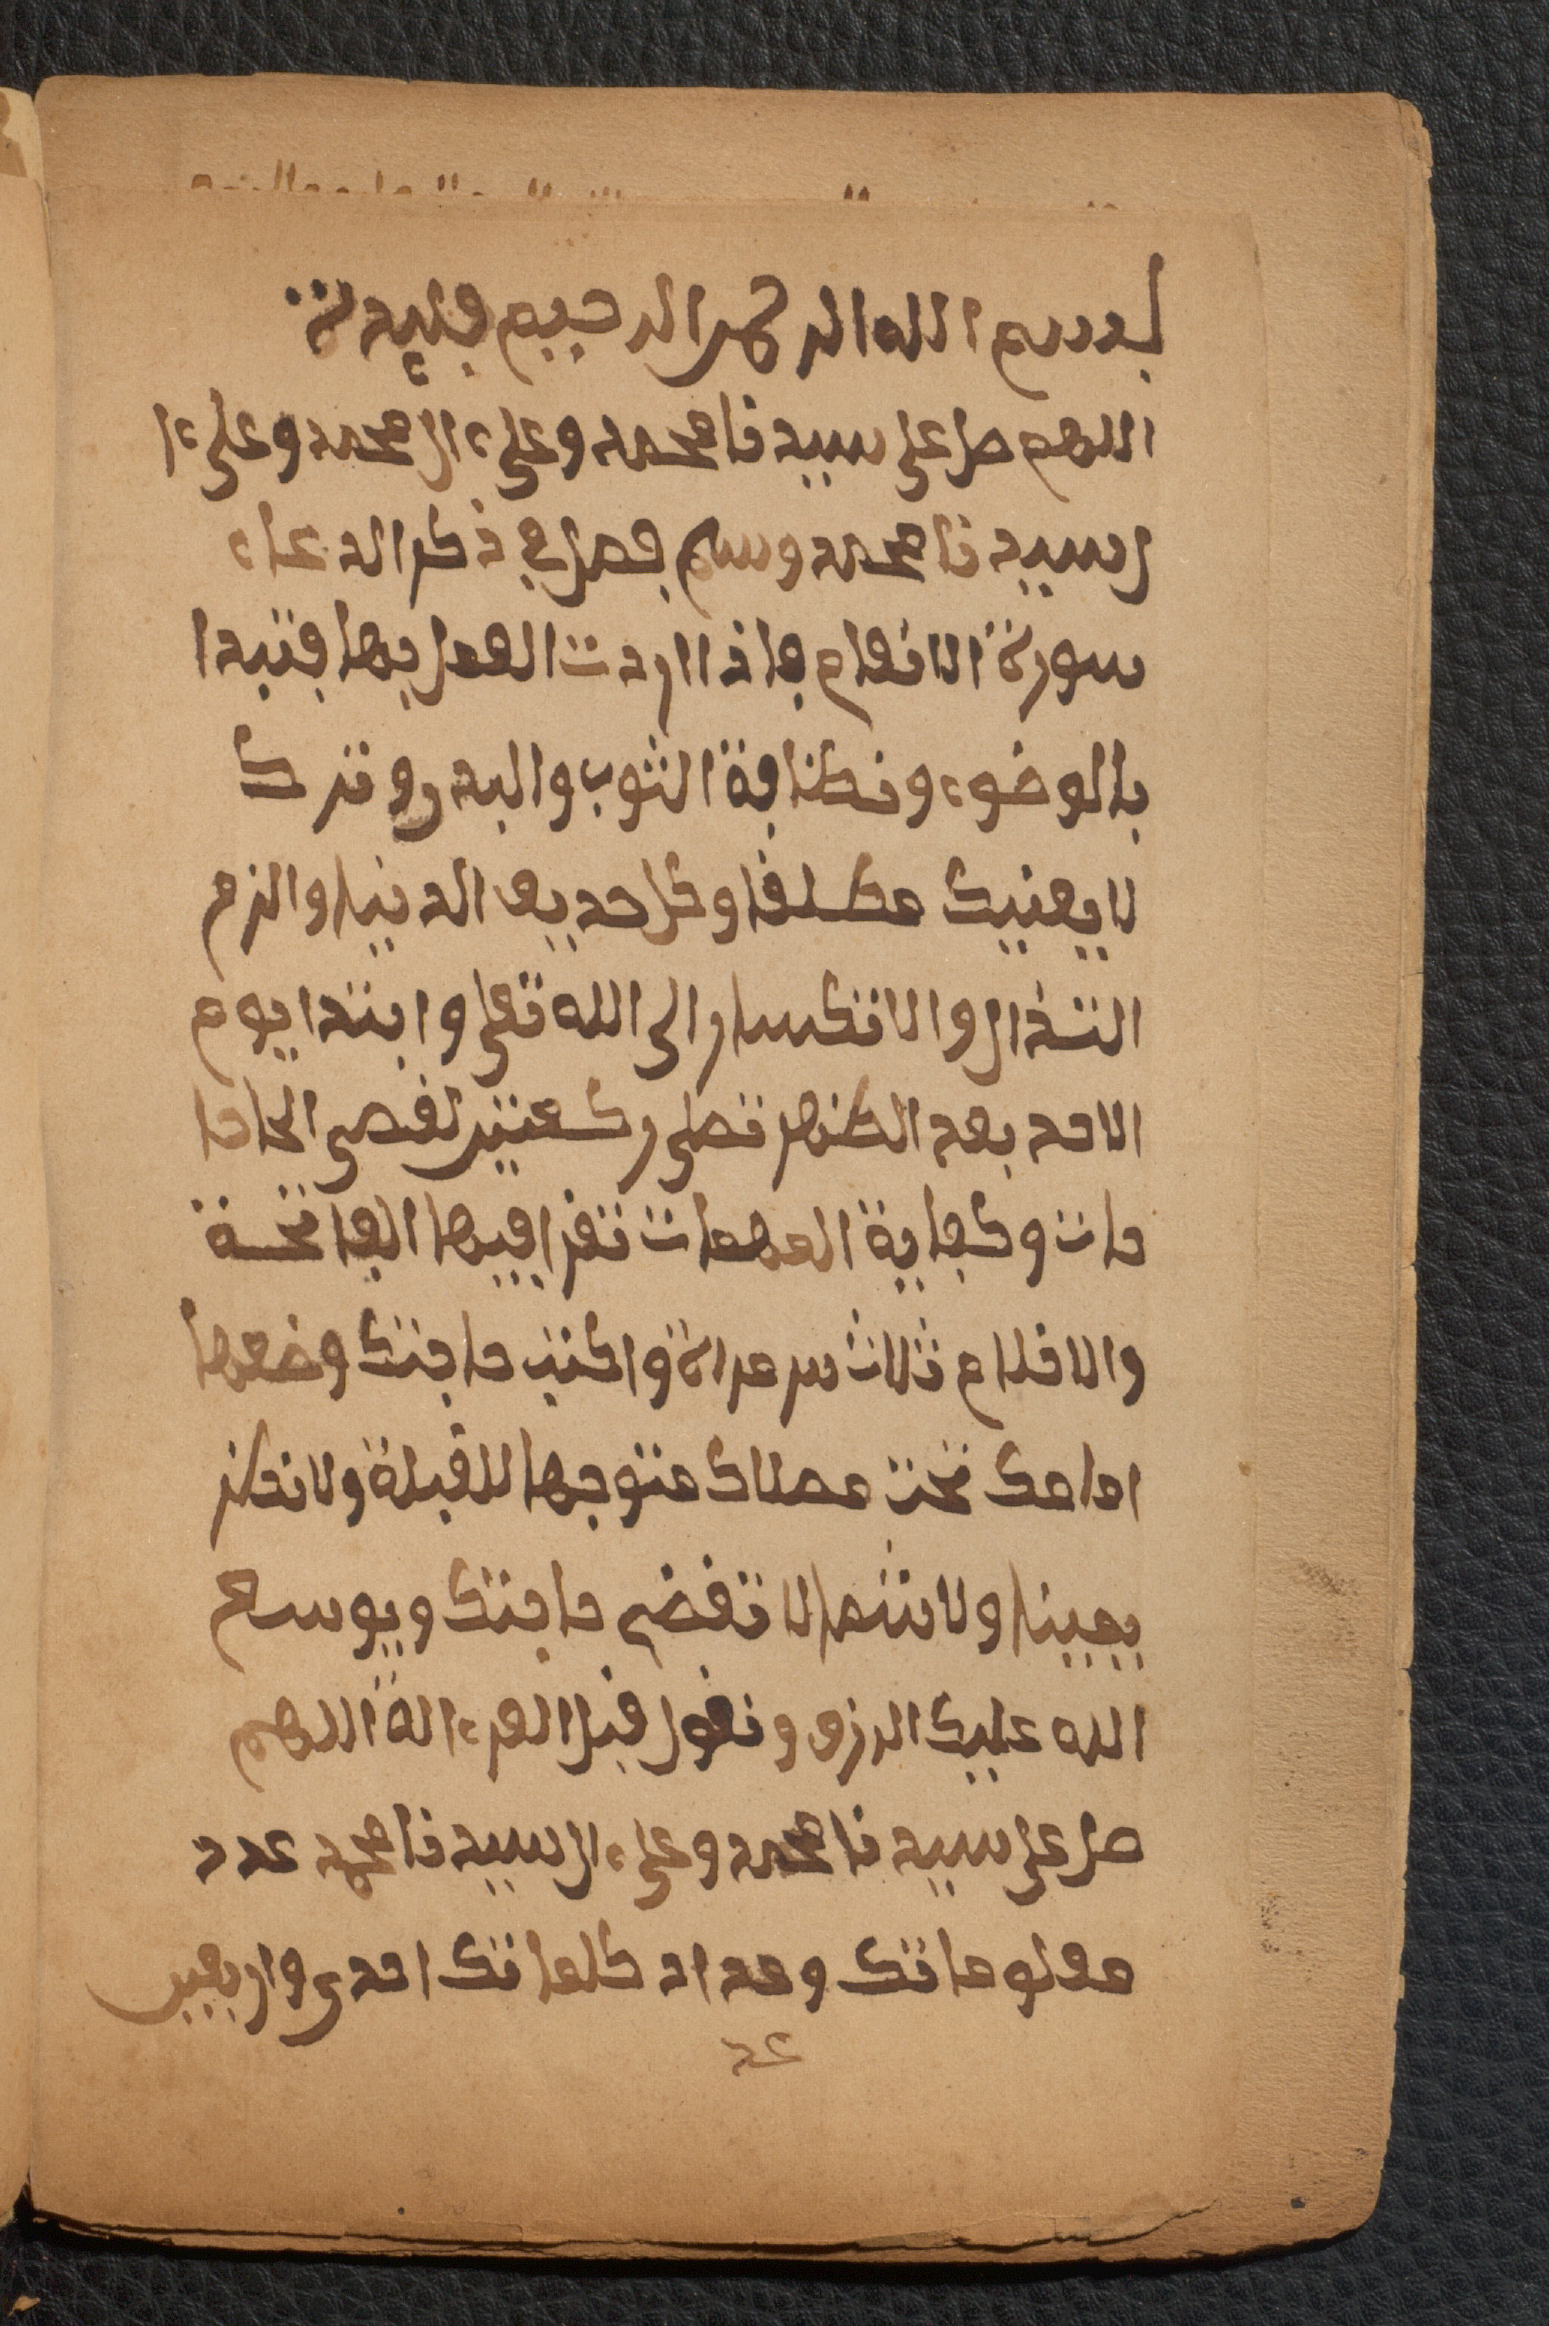 بسم الله الرحمن الرحيم فايدة
اللهم صل على سيدنا محمد وعلى ءال محمد وعلى ءا
ل سيدنا محمد وسلم فصل في ذكر الدعاء
سورة الانعام فاذا اردت العمل بها فتبدا
بالوضوء ونظافة الثوب والبدن وترك
لا يعنيك مطلقا وكل حديث الدنيا والزم
التذلل والانكسار الى الله تعلى وابتدا يوم
الاحد بعد الظهر تصلى ركعتين لقضى الحا حا
حات وكفاية المهمات تقرا فيها الفاتحة
والاخلاص ثلاث مرات واكتب حاجتك وضعها
امامك تحت مصلاك متوجها للقبلة ولا تكن
يمينا ولا شمالا تقضى حاجتك ويوسع
الله عليك الرزق وتقول قبل القراءة اللهم
صل على سيدنا محمد وعلى ءال سيدنا محمد عدد
معلوماتك ومداد كلماتك احدى واربعين